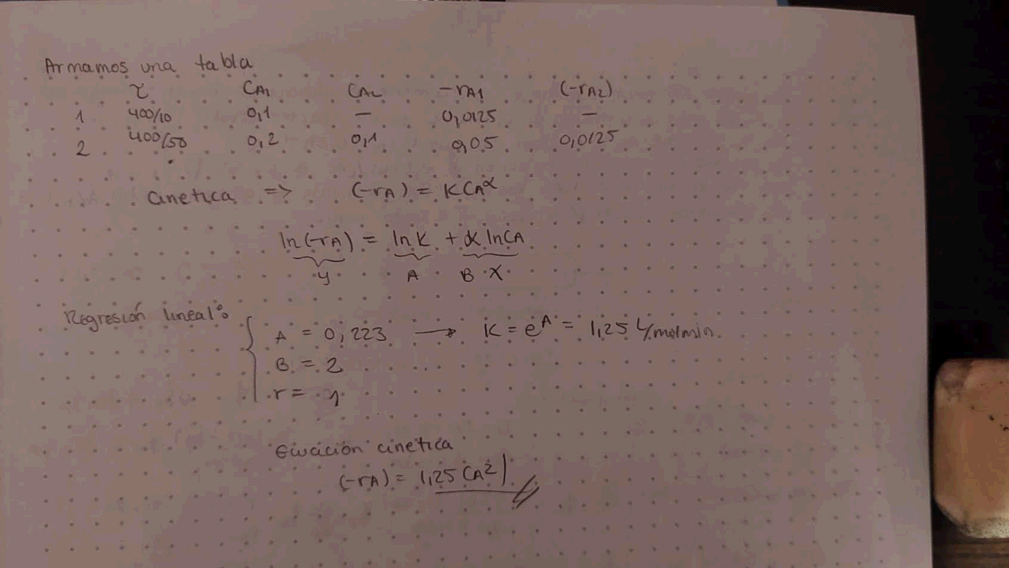 Armamos una tabla
τ CA1 CA2 -rA1 (-rA2)
1 400/10 0,1 — 0,0125 —
2 400/50 0,2 0,1 0,05 0,0125
Cinetica => (-rA) = KCA^α
ln(-rA) = ln K + α lnCA
y A B · X
Regresión lineal:
A = 0,223 → K = e^A = 1,25 L/molmin.
B = 2
r = 1
Ecuación cinetica
(-rA) = 1,25 CA²